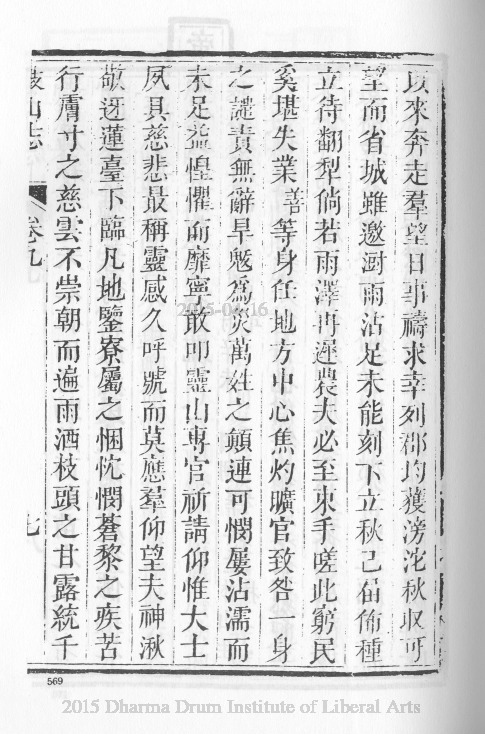 以來奔走羣望日事禱求幸列郡均獲滂沱秋収可
望而省城雖邀澍雨沾足未能刻下立秋已屆佈種
立待翻犁倘若雨澤再遲農夫必至束手嗟此窮民
奚堪失業善等身任地方中心焦灼曠官致咎一身
之譴責無辭旱魃為災萬姓之顛連可憫屢沾濡而
未足益惶懼而靡寧敢叩靈山專官祈請仰惟大士
夙具慈悲最稱靈感久呼號而莫應羣仰望夫神湫
敬迓蓮臺下臨凡地鑒寮屬之悃忱憫蒼黎之疾苦
行膚寸之慈雲不崇朝而遍雨洒枝頭之甘露統千
鼓山志 卷九 七
2015-04-16
569
2015 Dharma Drum Institute of Liberal Arts